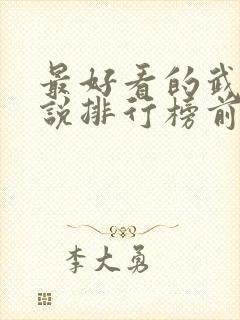 最好看的武
說排行榜前
李大勇